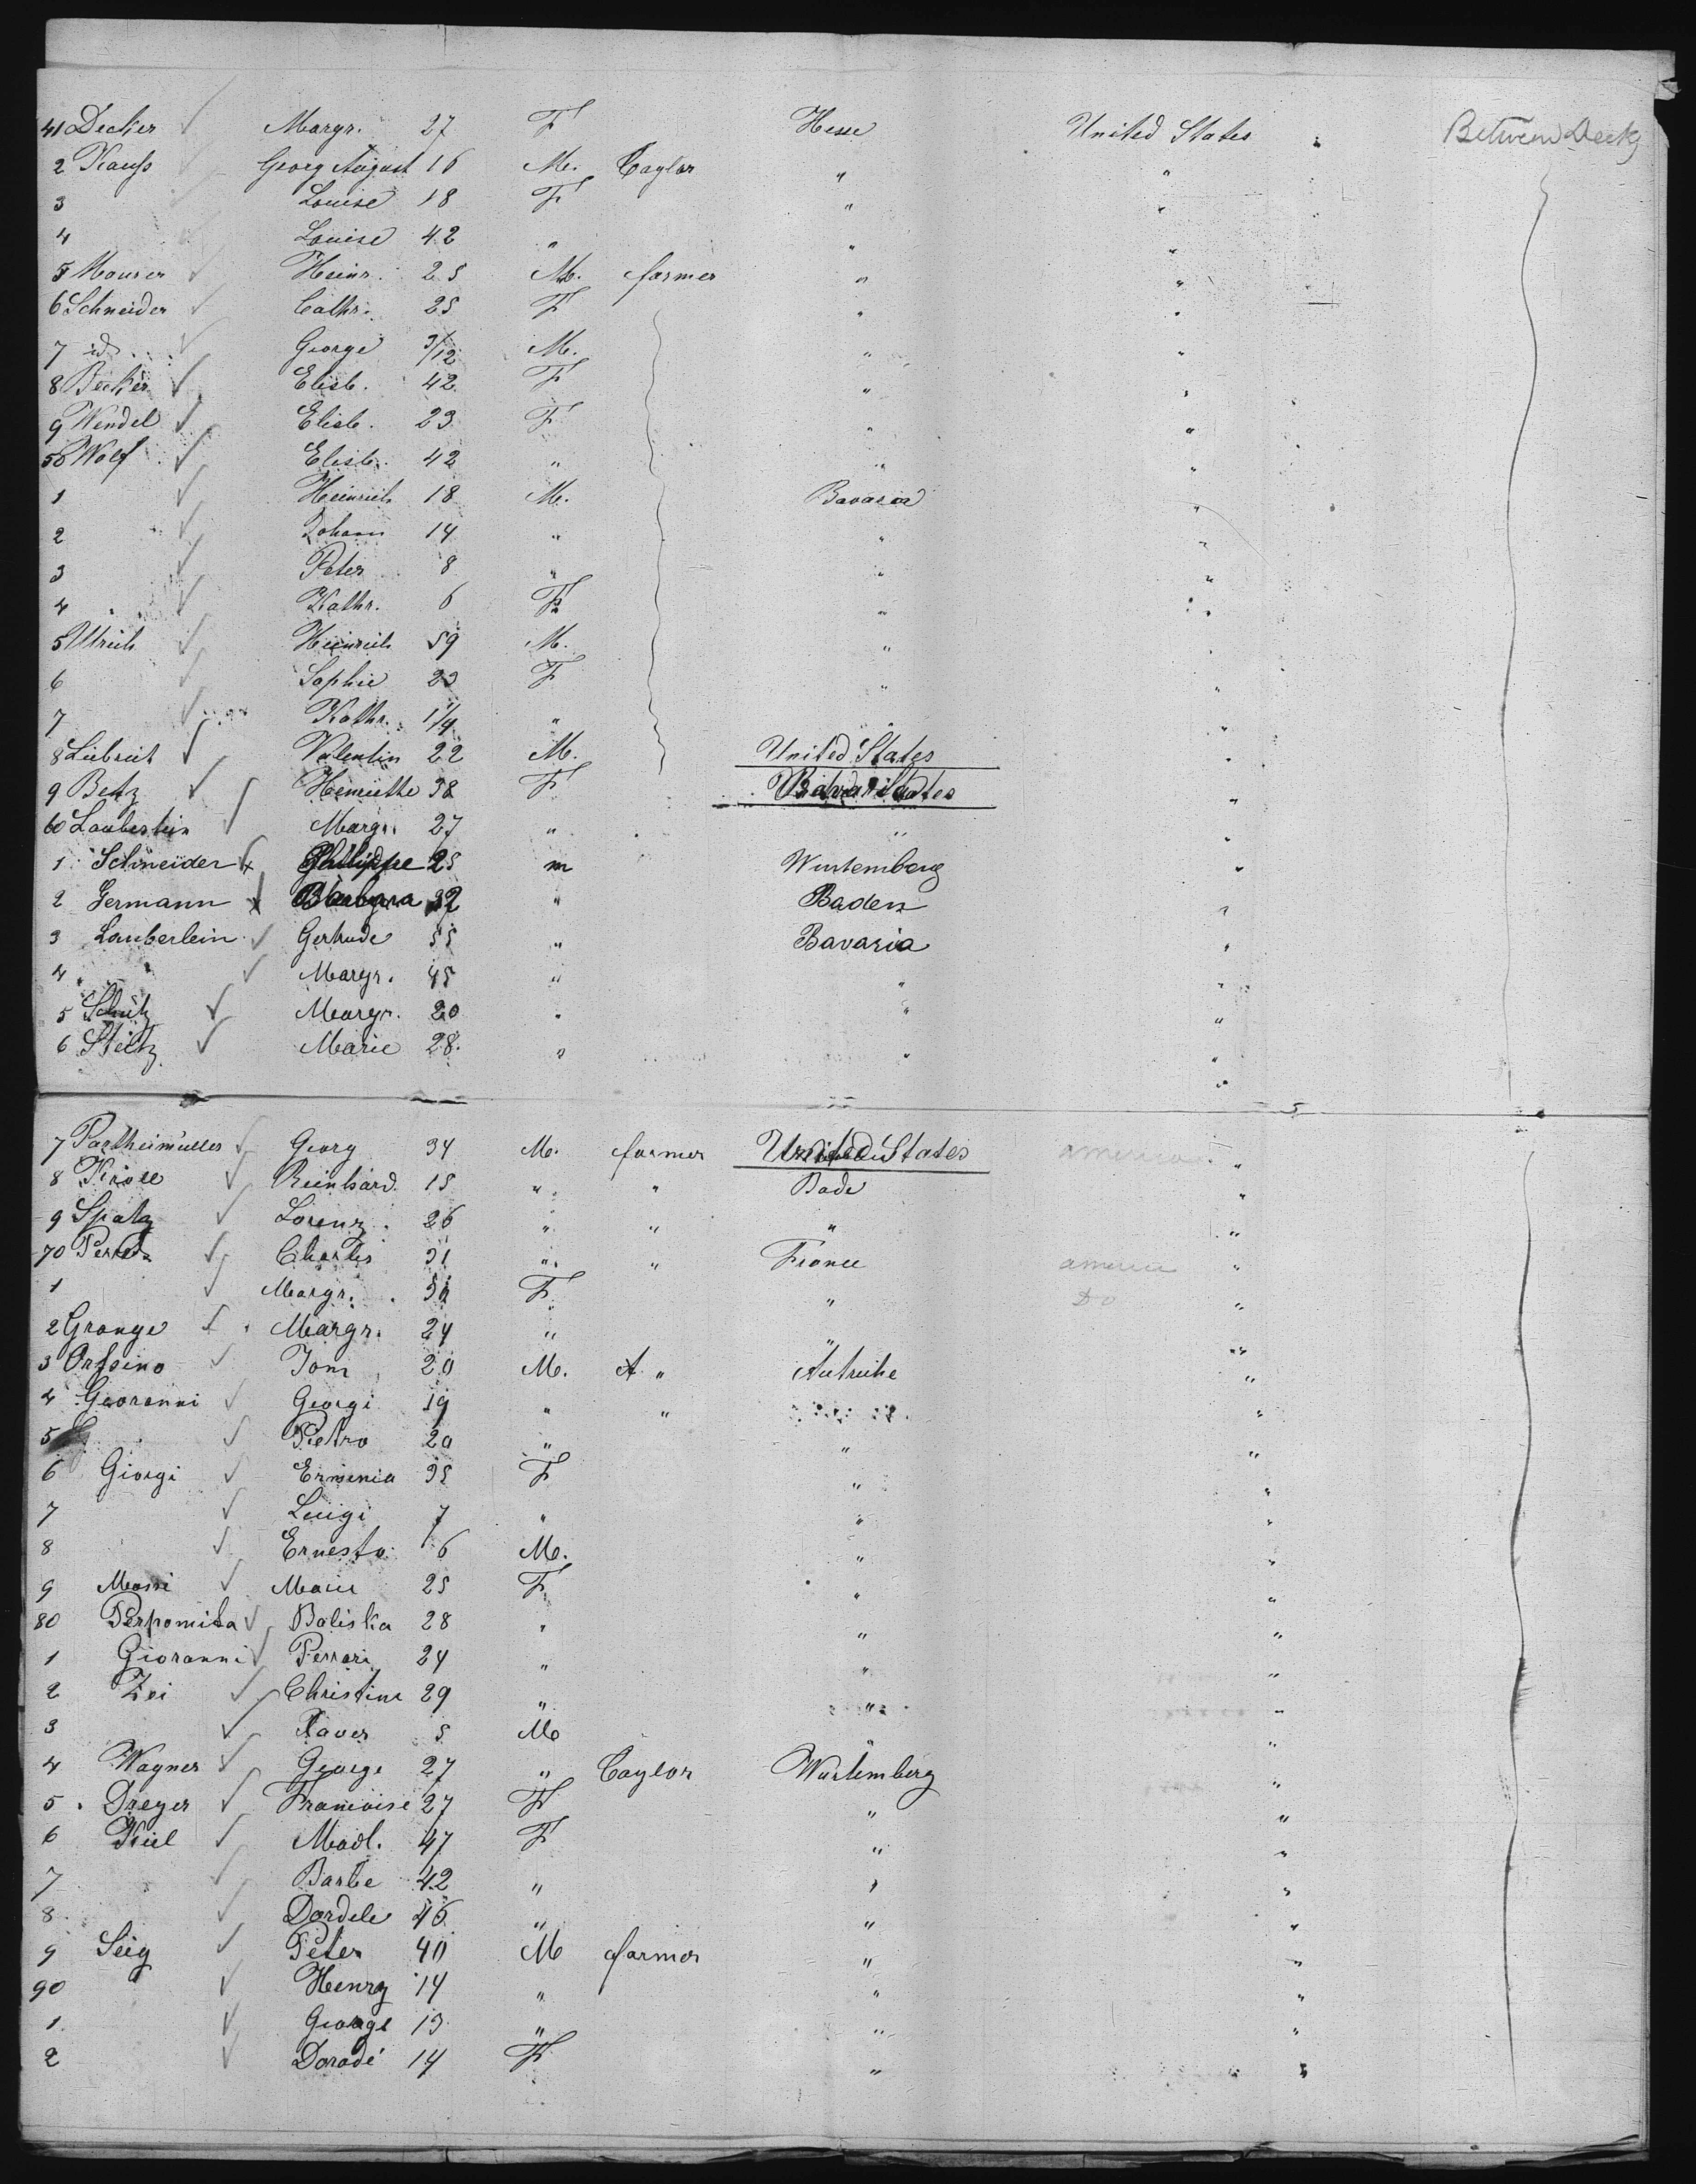 41 Decker Margr. 27 F Hesse United States Between Decks
2 Kauß Georg August 16 M. Taylor " "
3 Louise 18 F " "
4 Louise 42 " " "
5 Maurer Heinr. 25 M. farmer " "
6 Schneider Cathr. 25 F " "
7 id George 3/12 M. " "
8 Becker Elisb. 42 F " "
9 Wendel Elisb. 23 F " "
50 Wolf Elisb. 42 " " "
1 Heinrich 18 M. Bavaria "
2 Johann 14 " " "
3 Peter 8 " " "
4 Kathr. 6 F " "
5 Ulrich Heinrich 59 M. " "
6 Sophie 23 F " "
7 Kathr. 1/4 " "
8 Liebrich Valentin 22 M. United States "
9 Betz Henriethe 38 F "
60 Lauberlein Margr. 27 " " "
1 Schneider Philippe 25 m Wurtemberg "
2 Germann Barbara 32 " Baden "
3 Lauberlein Gertrude 55 " Bavaria "
4 Margr. 45 " " "
5 Schutz Margr. 20 " " "
6 Steitz Marie 28 " " "
7 Partheimuller Georg 34 M. farmer United States america "
8 Kroll Reinhard 15 " " Bade "
9 Spatz Lorenz 26 " " " "
70 Charles 31 " " France america "
1 Margr. F " Do "
2 Grange Margr. 24 " " "
3 Orfsino Tom 20 M. " Autriche "
4 Gioranni Georgi 19 " " "
5 Pietro 20 " " "
6 Giorgi Ermenia 35 F " "
7 Luigi 7 " " "
8 Ernesto 6 M. " "
9 Massi Marie 25 F " "
80 Perpomila Baliska 28 " " "
1 Gioranni Perrari 24 " " "
2 Zei Christine 29 " " "
3 Xaver 5 M "
4 Wagner George 27 " Taylor Wurtemberg "
5 Dreyer Francoise 27 F " "
6 Kiel Madl. 47 F " "
7 Barbe 42 " " "
8 Dordele 46 " " "
9 Seig Peter 40 M farmer " "
90 Henry 14 " " "
1 George 13 " " "
2 Doradé 14 F " "